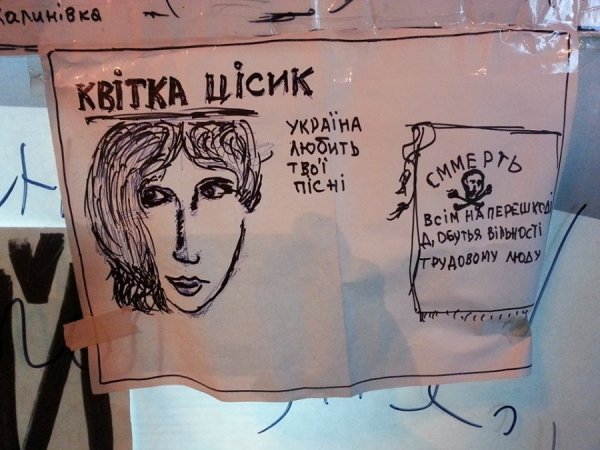 Калинівка
КВІТКА ЦІСИК
УКРАЇНА
ЛЮБИТЬ
ТВОЇ
ПІСНІ
СММЕРТЬ
ВСІМ НА ПЕРЕШКОДІ
Д,ОБУТЬЯ ВІЛЬНОСТІ
ТРУДОВОМУ ЛЮДУ